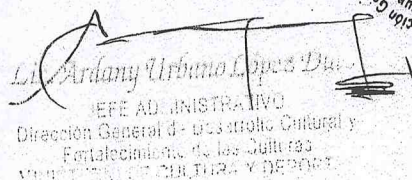 Ardany Urbano López
JEFE ADMINISTRATIVO
Dirección General de Desarrollo Cultural y
Fortalecimiento de las Culturas
MINISTERIO DE CULTURA Y DEPORTES